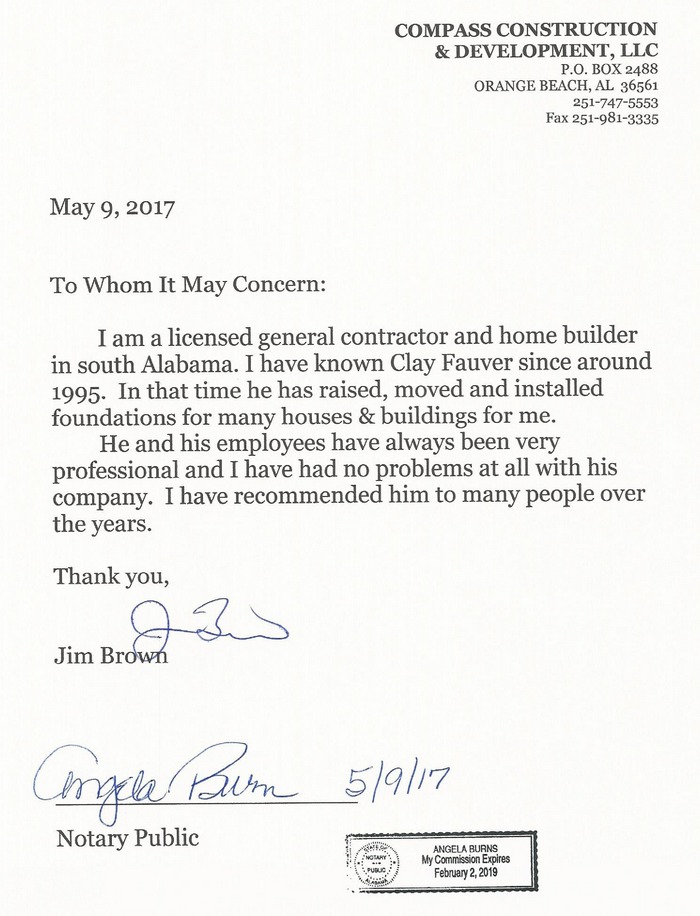 COMPASS CONSTRUCTION
& DEVELOPMENT, LLC
P.O. BOX 2488
ORANGE BEACH, AL 36561
251-747-5553
Fax 251-981-3335
May 9, 2017
To Whom It May Concern:
I am a licensed general contractor and home builder
in south Alabama. I have known Clay Fauver since around
1995. In that time he has raised, moved and installed
foundations for many houses & buildings for me.
He and his employees have always been very
professional and I have had no problems at all with his
company. I have recommended him to many people over
the years.
Thank you,
Jim Brown
Angela Burn 5/9/17
Notary Public
STATE OF
NOTARY
PUBLIC
ALABAMA
ANGELA BURNS
My Commission Expires
February 2, 2019